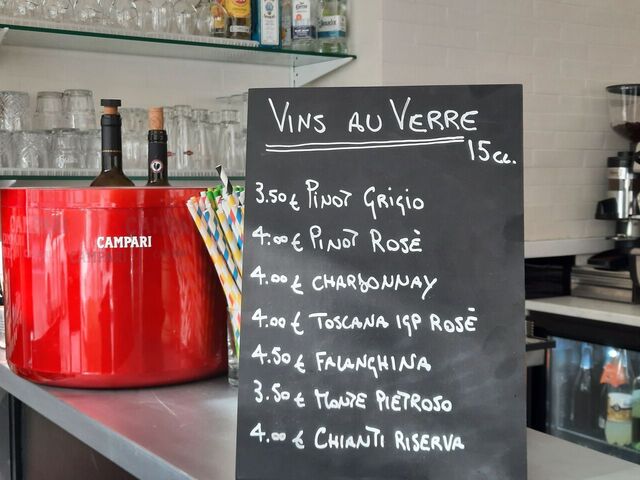 VINS AU VERRE
15cc.
3.50 € PINOT GRIGIO
4.00 € PINOT ROSÈ
4.00 € CHARDONNAY
4.00 € TOSCANA IGP ROSÈ
4.50 € FALANGHINA
3.50 € MONTE PIETROSO
4.00 € CHIANTI RISERVA
CAMPARI